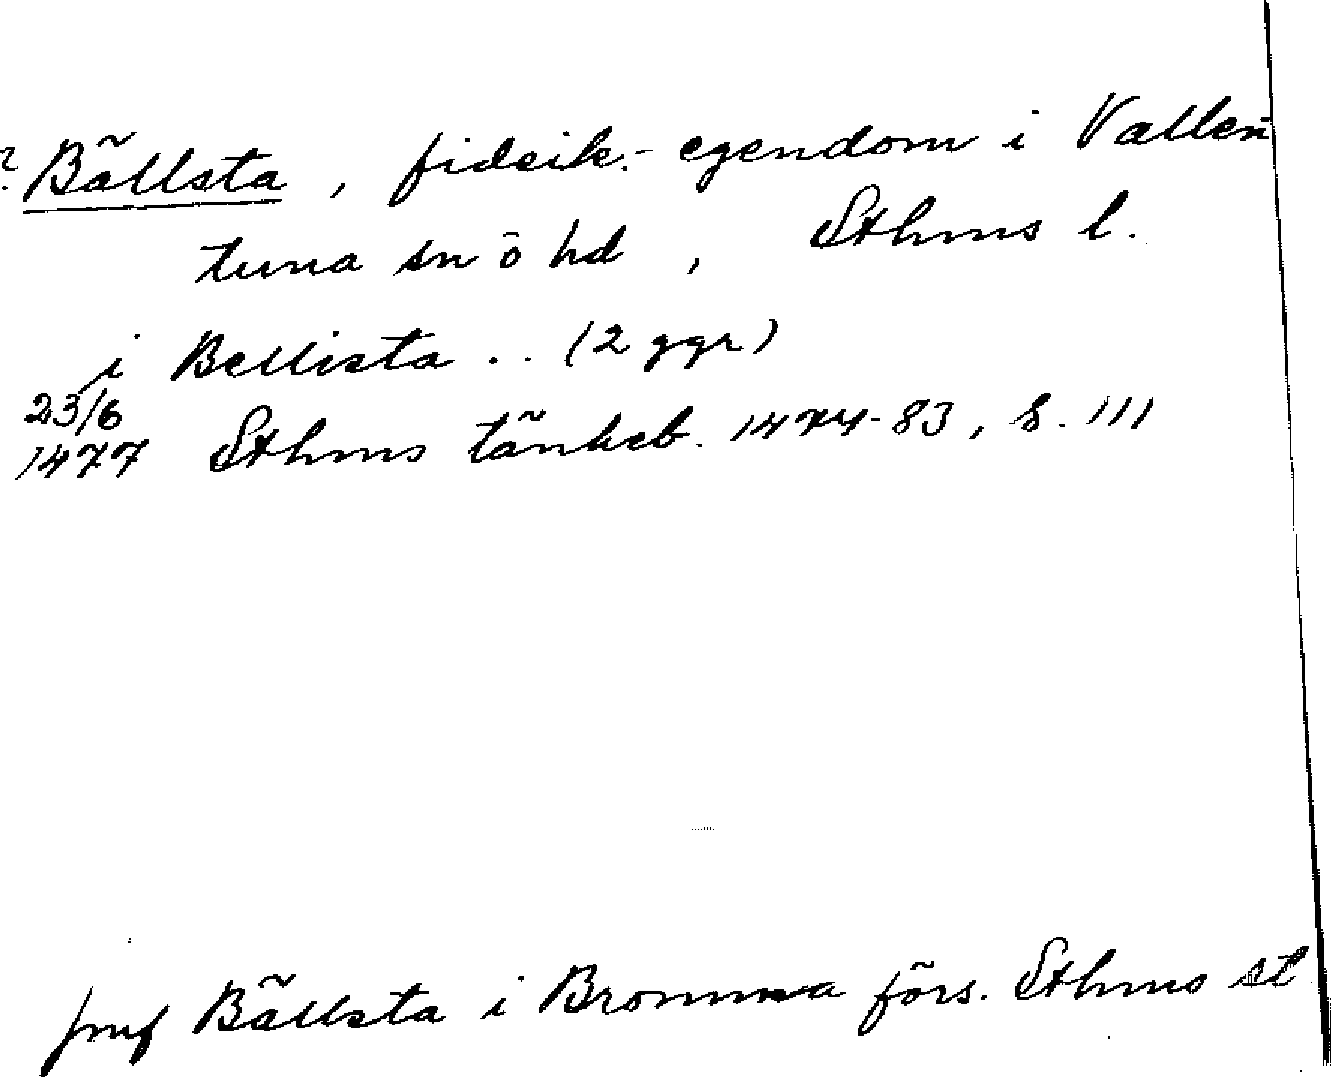 ? Bällsta, fideik.-egendom i Vallen
tuna sn ö hd, Sthms l.
i Bellista .. (2 ggr)
23/6
1477 Sthms tänkeb. 1474-83, s. 111
jmf Bällsta i Bromma förs. Sthms st